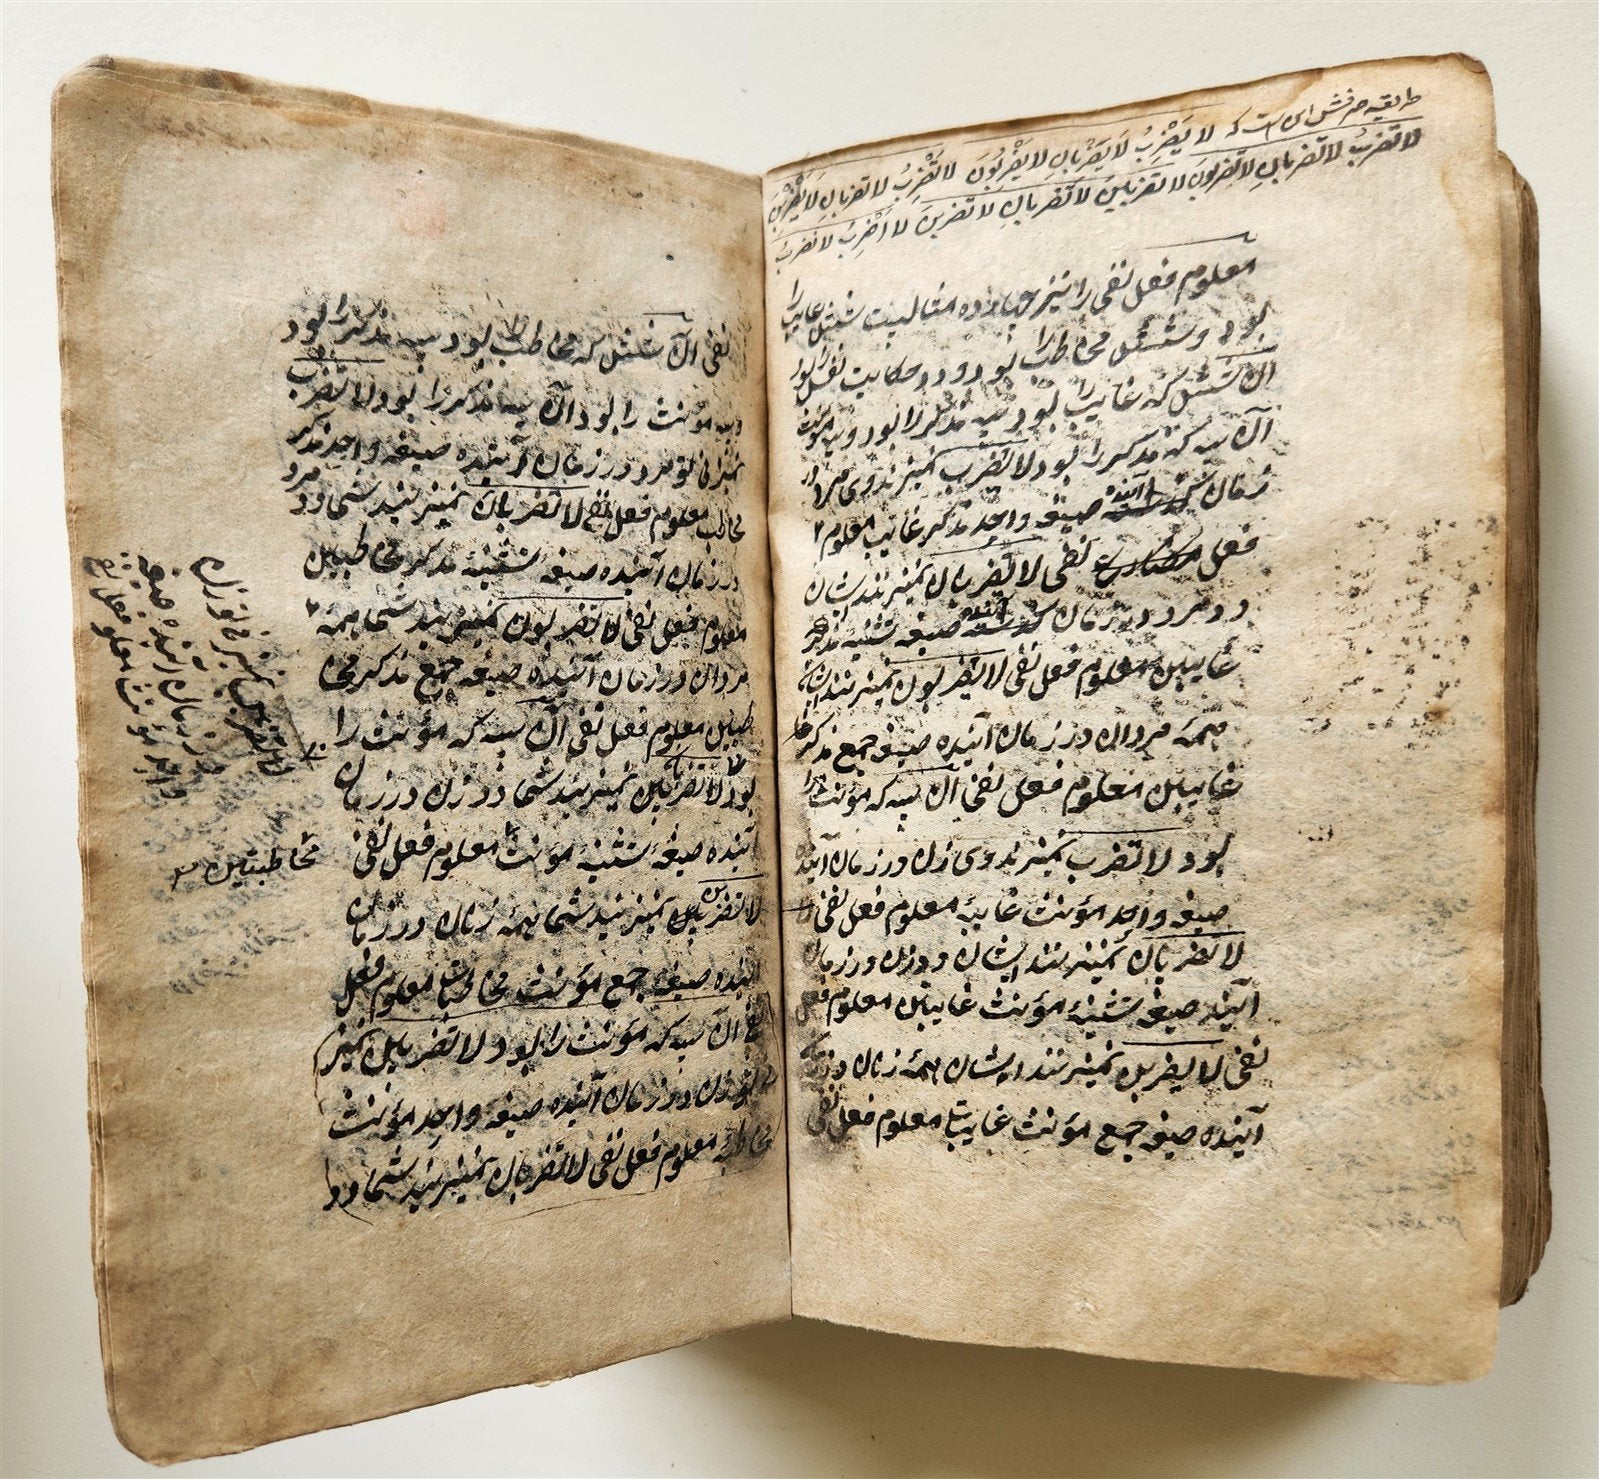 طریقه صرفش این است که لا یَضْرِبُ لا یَضْرِبانِ لا یَضْرِبُونَ لا تَضْرِبُ لا تضربانِ لا یَضْرِبْنَ
لا تضربُ لا تضربانِ لا تضربون لا تضربین لا تضربانِ لا تضربنَ لا اَضْرِبُ لا نضربُ
معلوم فعل نفی را نیز چهارده مثالست شش غایب را
بود و شش مخاطب را بود و دو حکایت نفس را بود
آن شش که غایب را بود سه مذکر را بود و سه مؤنث
آن سه که مذکر را بود لا یضرب نمیزند وی مرد در
زمان آینده صیغه واحد مذکر غایب معلوم
فعل نفی لا یضربان نمیزنند ایشان
دو مرد در زمان آینده صیغه تثنیه مذکر
غایبین معلوم فعل نفی لا یضربون نمیزنند ایشان
همه مردان در زمان آینده صیغه جمع مذکر
غایبین معلوم فعل نفی آن سه که مؤنث را
بود لا تضرب نمیزند وی زن در زمان آینده
صیغه واحد مؤنث غایبه معلوم فعل نفی
لا تضربان نمیزنند ایشان دو زن در زمان
آینده صیغه تثنیه مؤنث غایبتین معلوم فعل
نفی لا یضربن نمیزنند ایشان همه زنان در زمان
آینده صیغه جمع مؤنث غایبات معلوم فعل نفی
نفی آن شش که مخاطب را بود سه مذکر را بود
و سه مؤنث را بود آن سه مذکر را بود لا تضرب
نمیزنی تو مرد در زمان آینده صیغه واحد مذکر
مخاطب معلوم فعل نفی لا تضربان نمیزنید شما دو مرد
در زمان آینده صیغه تثنیه مذکر مخاطبین
معلوم فعل نفی لا تضربون نمیزنید شما همه
مردان در زمان آینده صیغه جمع مذکر مخا
طبین معلوم فعل نفی آن سه که مؤنث را
بود لا تضربان نمیزنید شما دو زن در زمان
آینده صیغه تثنیه مؤنث معلوم فعل نفی
لا تضربن نمیزنید شما همه زنان در زمان
آینده صیغه جمع مؤنث مخاطبات معلوم فعل
نفی آن سه که مؤنث را بود لا تضربین نمیز
نی تو زن در زمان آینده صیغه واحد مؤنث
مخاطبه معلوم فعل نفی لا تضربان نمیزنید شما دو
لا تضربین نمیزنی تو زن
در زمان آینده صیغه
واحد مؤنث معلوم فعل
مخاطبتین